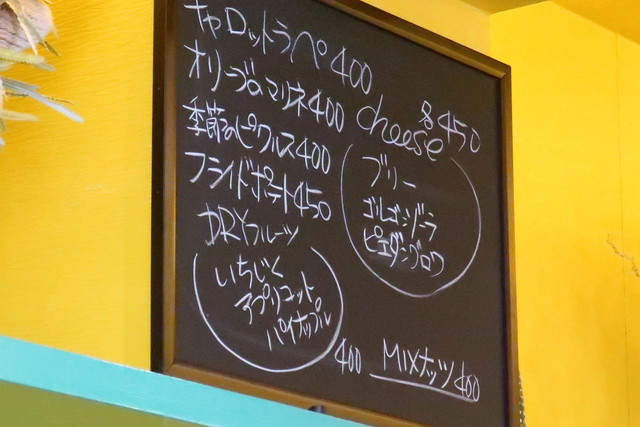 キャロットラペ 400
オリーブのマリネ 400
季節のピクルス 400
フライドポテト 450
DRYフルーツ
いちじく
アプリコット
パイナップル
400
cheese 各450
ブリー
ゴルゴンゾーラ
ピエダングロワ
MIXナッツ 400